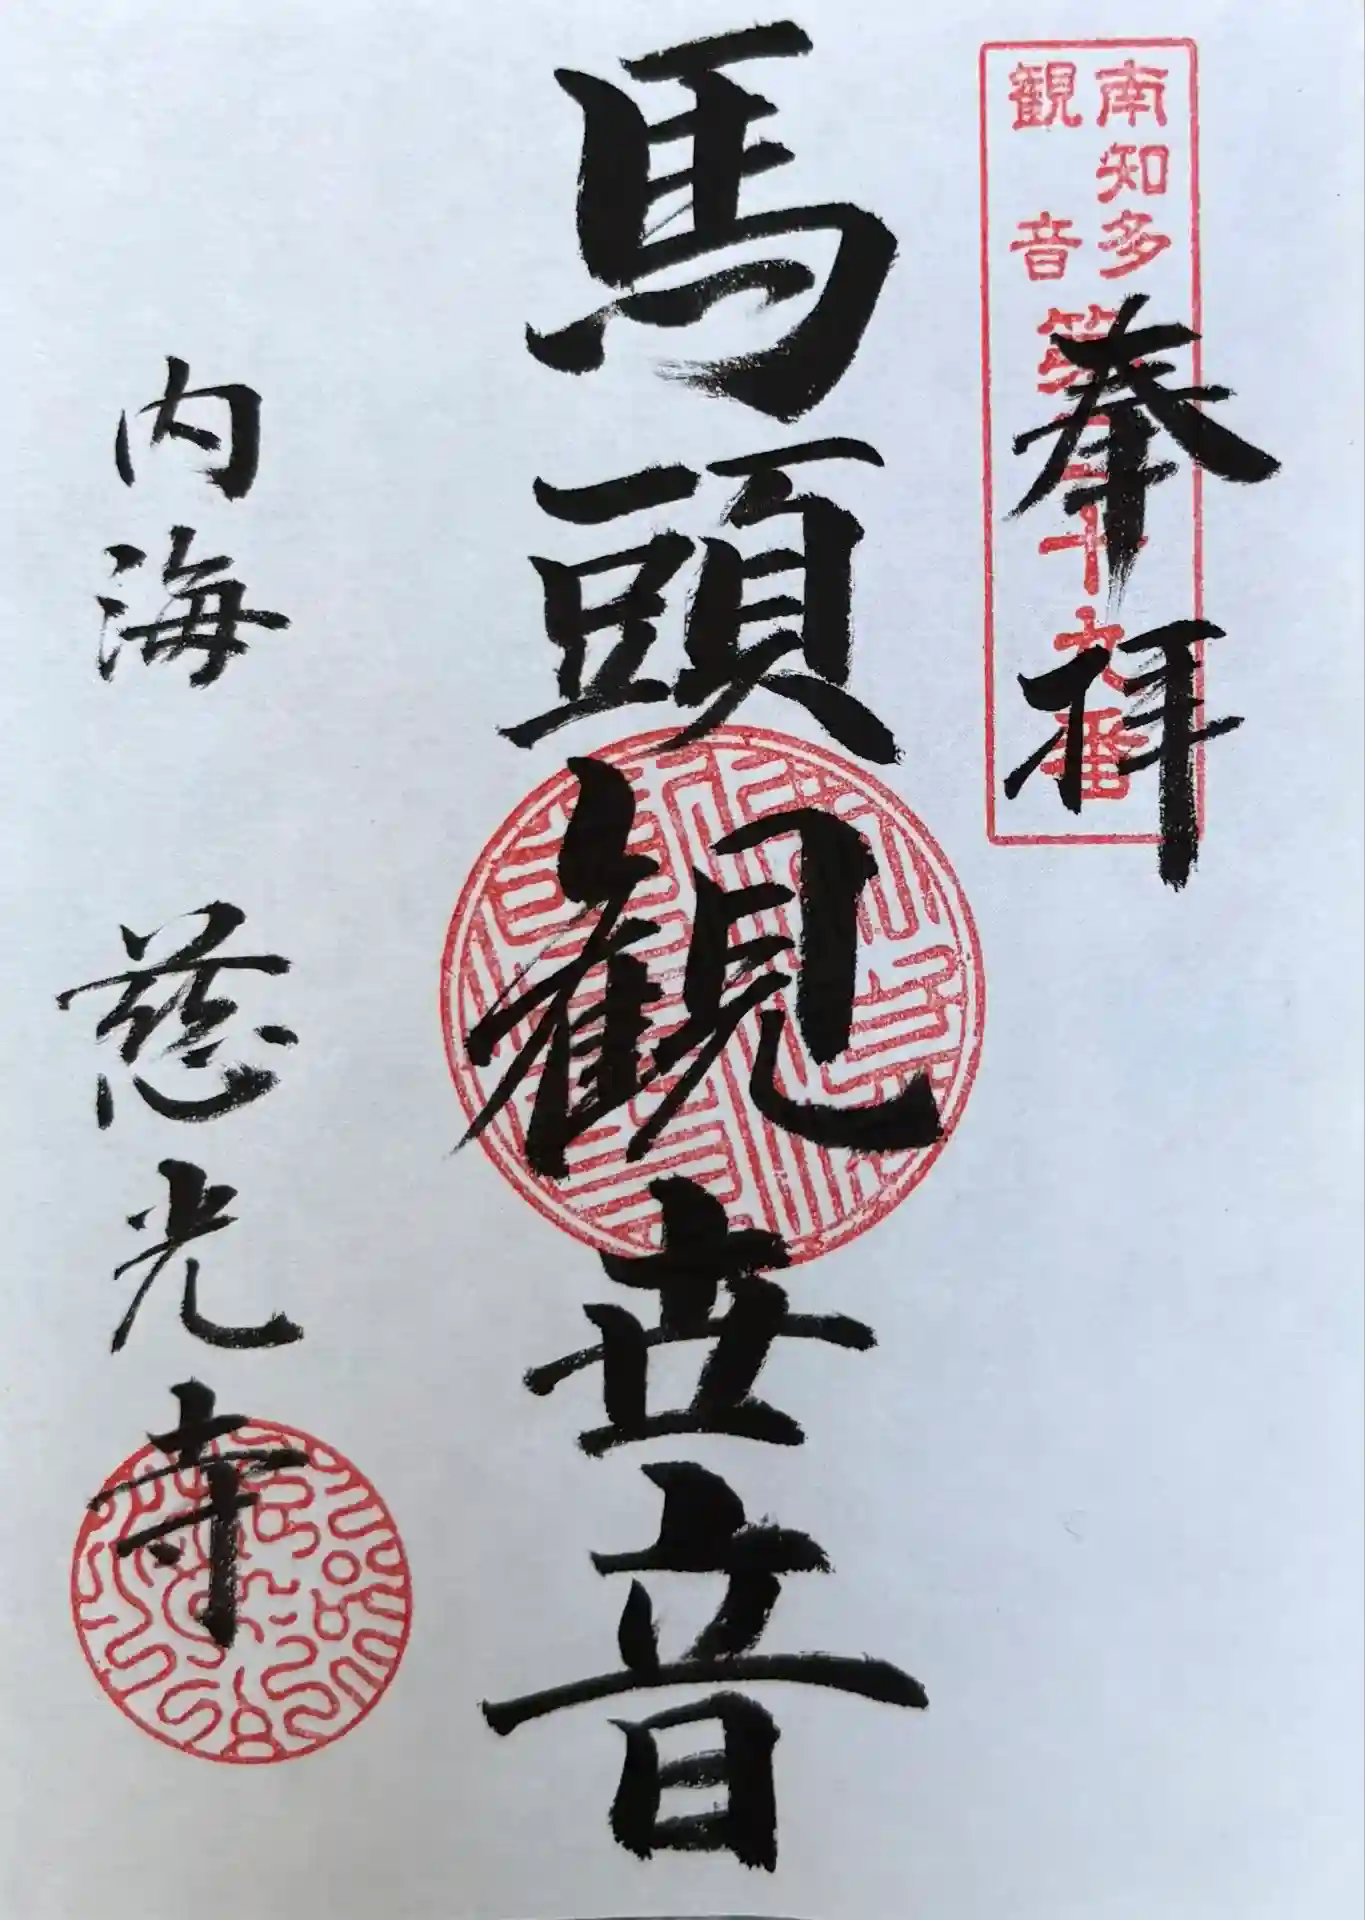 南知多
観音
第二十九番
奉拝
馬頭観世音
内海 慈光寺